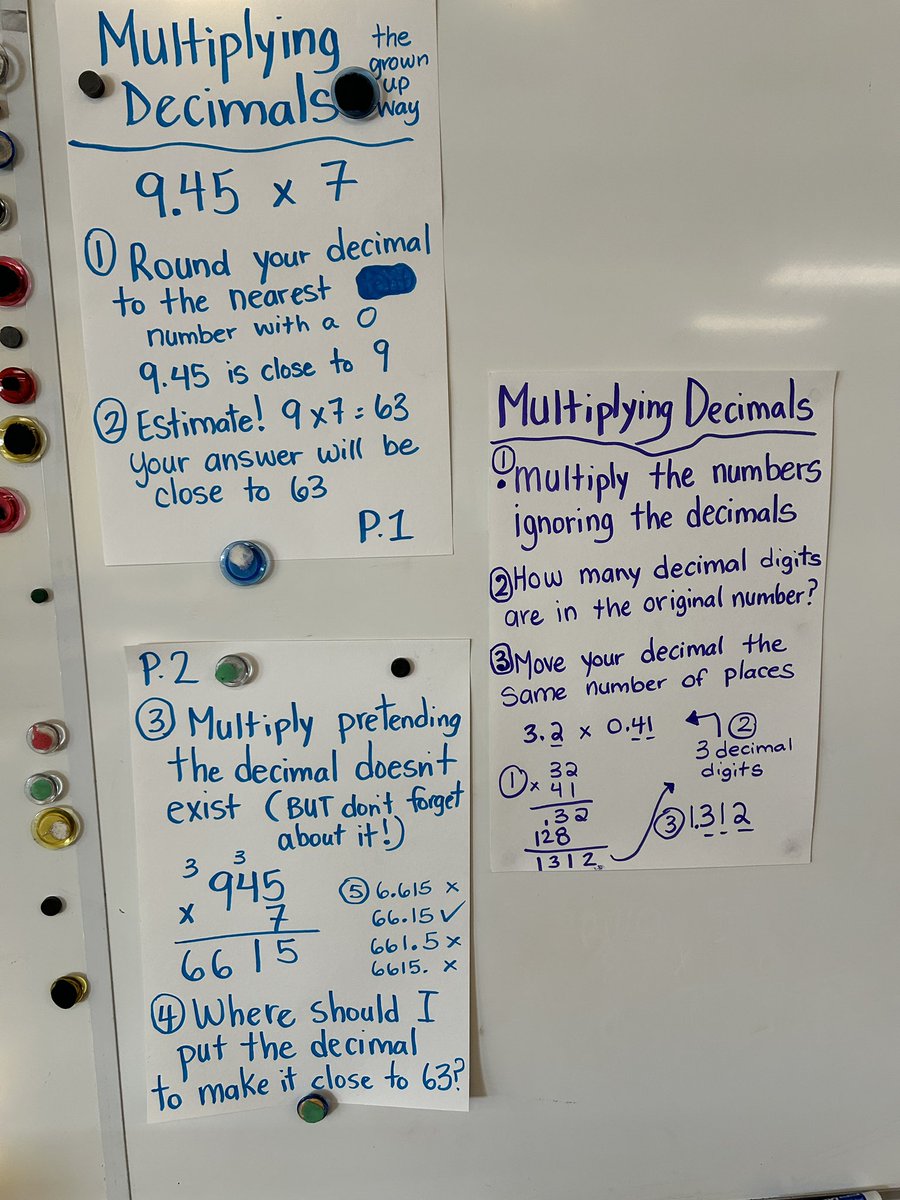 Multiplying
Decimals
the
grown
up
way
9.45 x 7
① Round your decimal
to the nearest
number with a 0
9.45 is close to 9
② Estimate! 9 x 7 = 63
your answer will be
close to 63
P.1
P.2
③ Multiply pretending
the decimal doesn't
exist (BUT don't forget
about it!)
3 3
945
x 7
6615
⑤ 6.615 x
66.15 ✓
661.5 x
6615. x
④ Where should I
put the decimal
to make it close to 63?
Multiplying Decimals
① multiply the numbers
ignoring the decimals
② How many decimal digits
are in the original number?
③ Move your decimal the
same number of places
3.2 x 0.41
②
3 decimal
digits
① 32
x 41
.32
128
1312.
③ 1.312